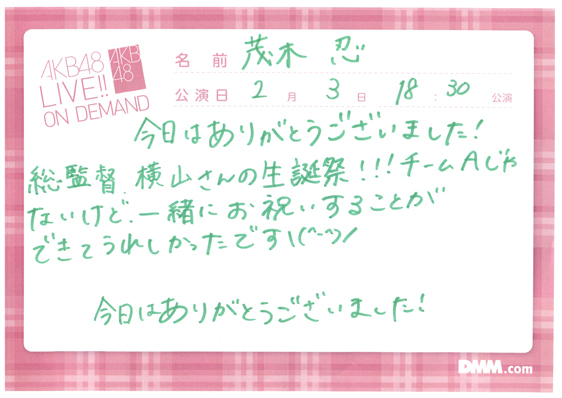 AKB48
LIVE!!
ON DEMAND
AKB
48
名前 茂木 忍
公演日 2月 3日 18:30 公演
今日はありがとうございました!
総監督、横山さんの生誕祭!!!チームAじゃ
ないけど、一緒にお祝いすることが
できてうれしかったです\(^-^)/
今日はありがとうございました!
DMM.com